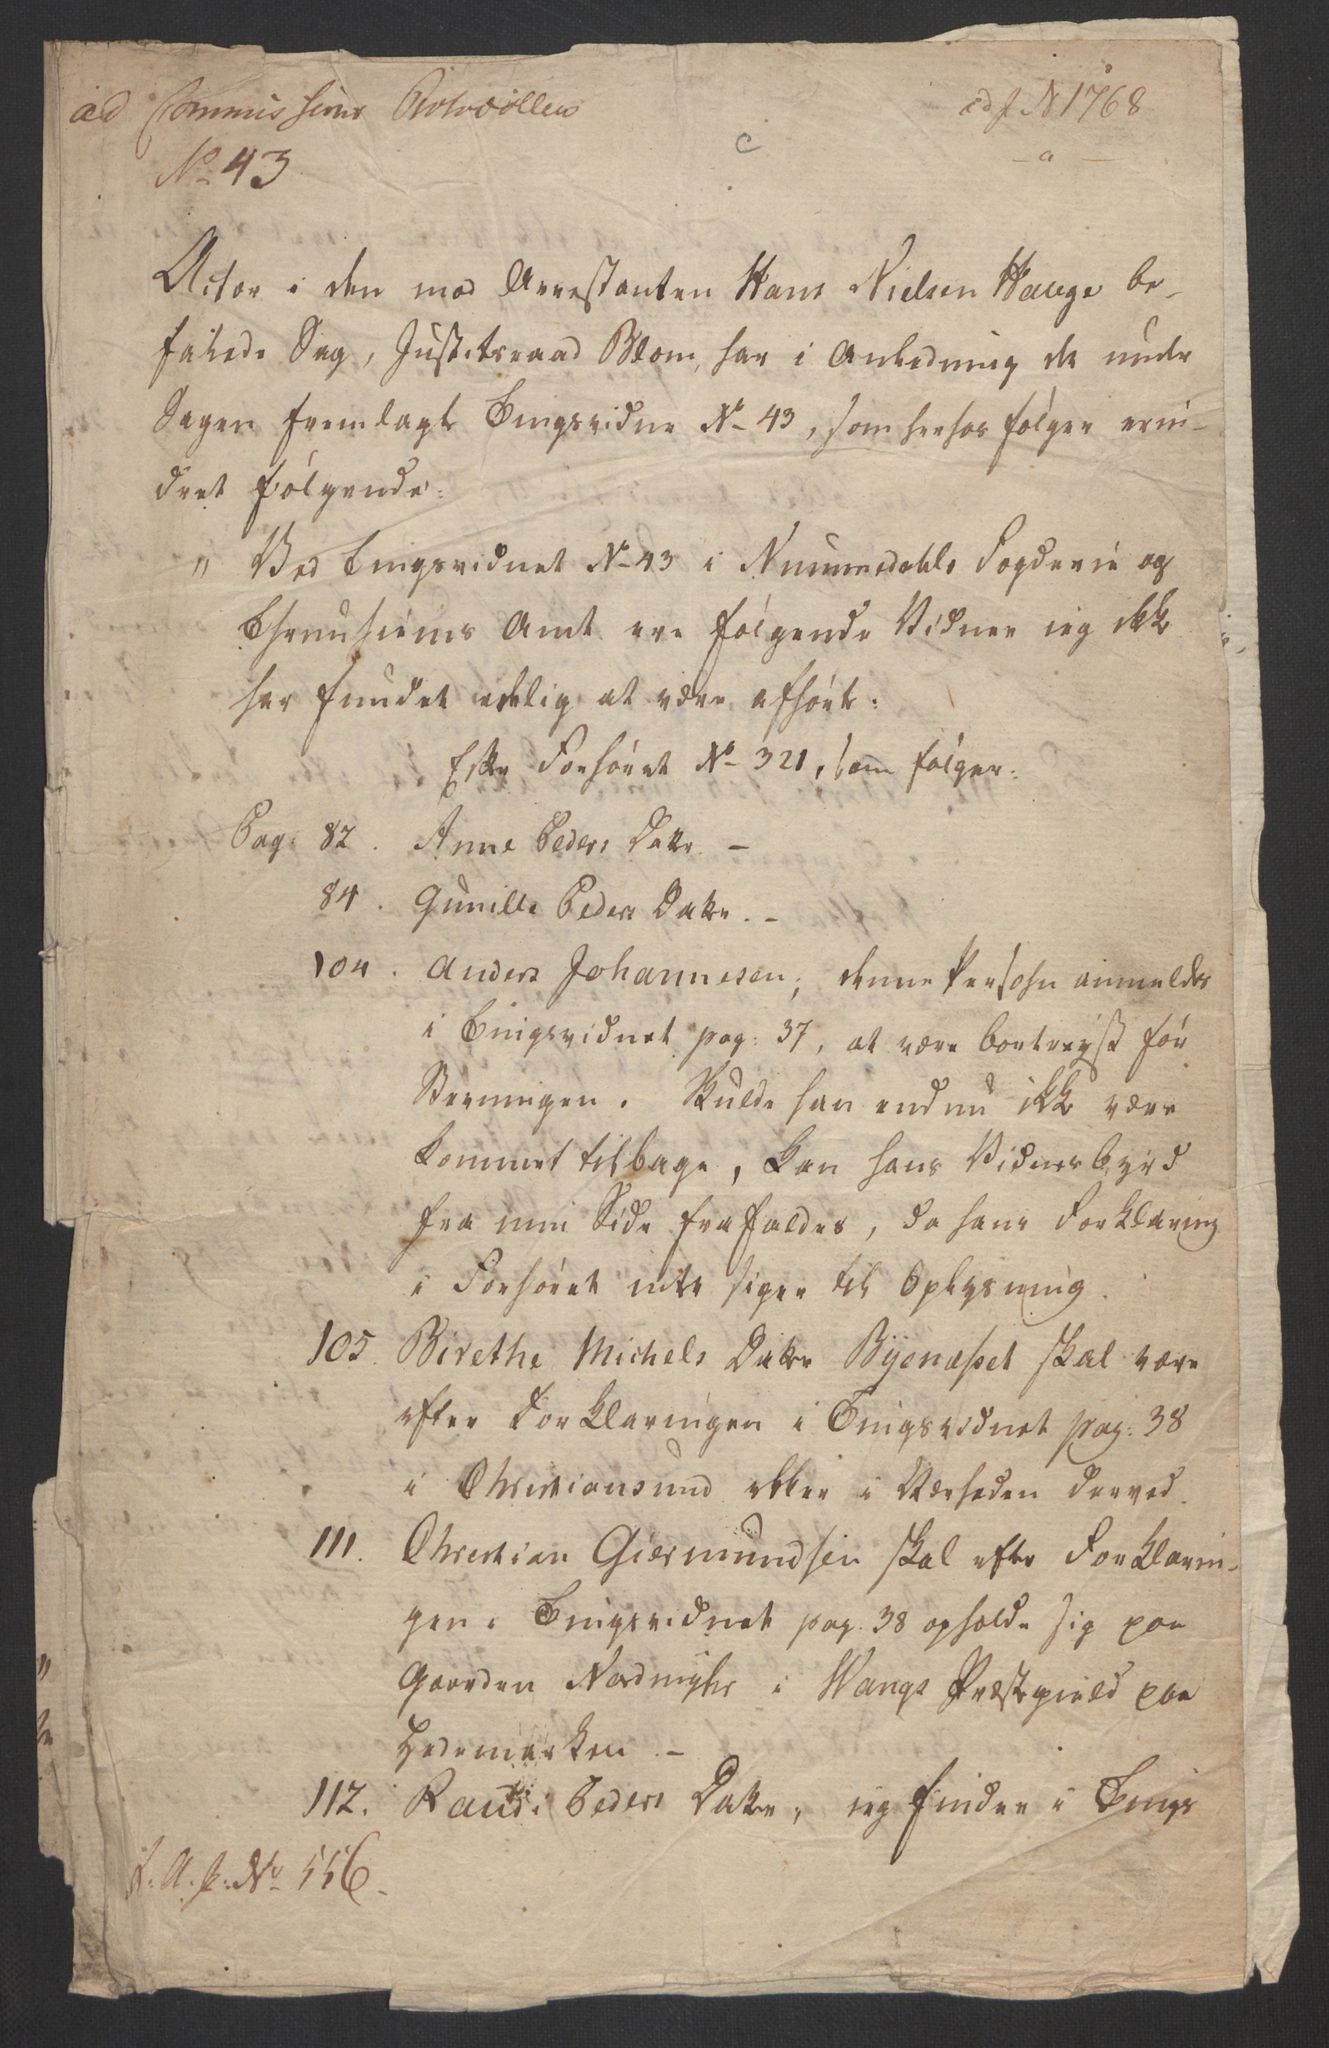 ad Commissions Protocollen
ad J N 1768
No 43
c
a
Actor i den mod Arrestanten Hans Nielsen Hauge be-
falede Sag, Justitsraad Blom, har i Anledning de under
Sagen fremlagte Tingsvidne No 43, som herhos følger erin-
dret følgende:
" Ved Tingsvidnet No 43 i Nummedahls Fogderie og
Thrunhiems Amt ere følgende Vidner ieg ikke
har fundet edelig at være afhørte:
Efter Forhøret No 321, som følger:
Pag: 82. Anne Peders Datter —
84. Gunille Peders Datter. —
104. Anders Johannesen; denne Persohn anmeldes
i Tingsvidnet pag: 37, at være bortreyst før
Stevningen. Skulde han endnu ikke være
kommet tilbage, kan hans Vidnesbyrd
fra min Side frafaldes, da hans Forklaring
i Forhøret intet siger til Oplysning.
105. Birethe Michels Datter Byenæsset skal være
efter Forklaringen i Tingsvidnet pag: 38
i Christiansund eller i Nærheden derved.
111. Christian Giermundsen skal efter Forklarin-
gen i Tingsvidnet pag. 38 opholde sig paa
Gaarden Nordvigle i Wangs Præstegield paa
Hedemarken —
112. Randi Peders Datter, ieg finder i Tings
No 556